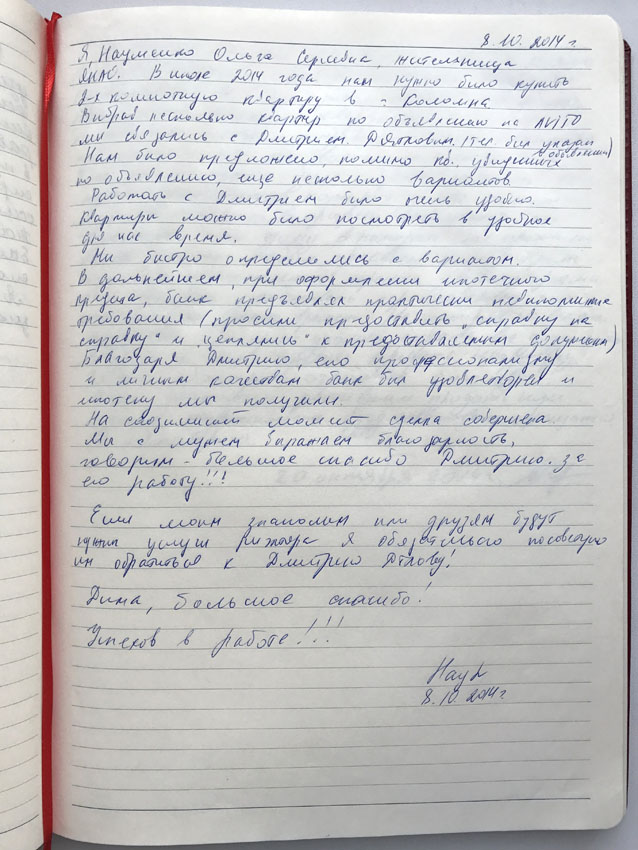 8.10.2014 г
Я, Науменко Ольга Сергеевна, жительница
ЯНАО. В июле 2014 года нам нужно было купить
2-х комнатную квартиру в г Коломна
Выбрав несколько квартир по объявлению на AVITO
мы связались с Дмитрием Дятловым. (тел был указан
в объявлении)
Нам было предложено, помимо кв. увиденных
по объявлению, еще несколько вариантов.
Работать с Дмитрием было очень удобно.
Квартиры можно было посмотреть в удобное
для нас время.
Мы быстро определились с вариантом.
В дальнейшем, при оформлении ипотечного
кредита, банк предъявлял практически невыполнимые
требования (просили предоставить "справку на
справку" и "цеплялись" к предоставленным документам)
Благодаря Дмитрию, его профессионализму
и личным качествам банк был удовлетворен и
ипотеку мы получили.
На сегодняшний момент сделка совершена.
Мы с мужем выражаем благодарность,
говорим - большое спасибо Дмитрию за
его работу!!!
Если моим знакомым или друзьям будут
нужны услуги риэлтора я обязательно посоветую
им обратиться к Дмитрию Дятлову!
Дима, большое спасибо!
Успехов в работе!!!
8.10.2014 г